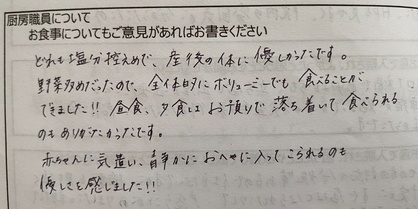 厨房職員について
お食事についてもご意見があればお書きください
どれも塩分控えめで、産後の体に優しかったです。
野菜多めだったので、全体的にボリューミーでも食べることが
できました!!昼食、夕食はお預りで落ち着いて食べられる
のもありがたかったです。
赤ちゃんに気遣い、静かにおへやに入ってこられるのも
優しさを感じました!!